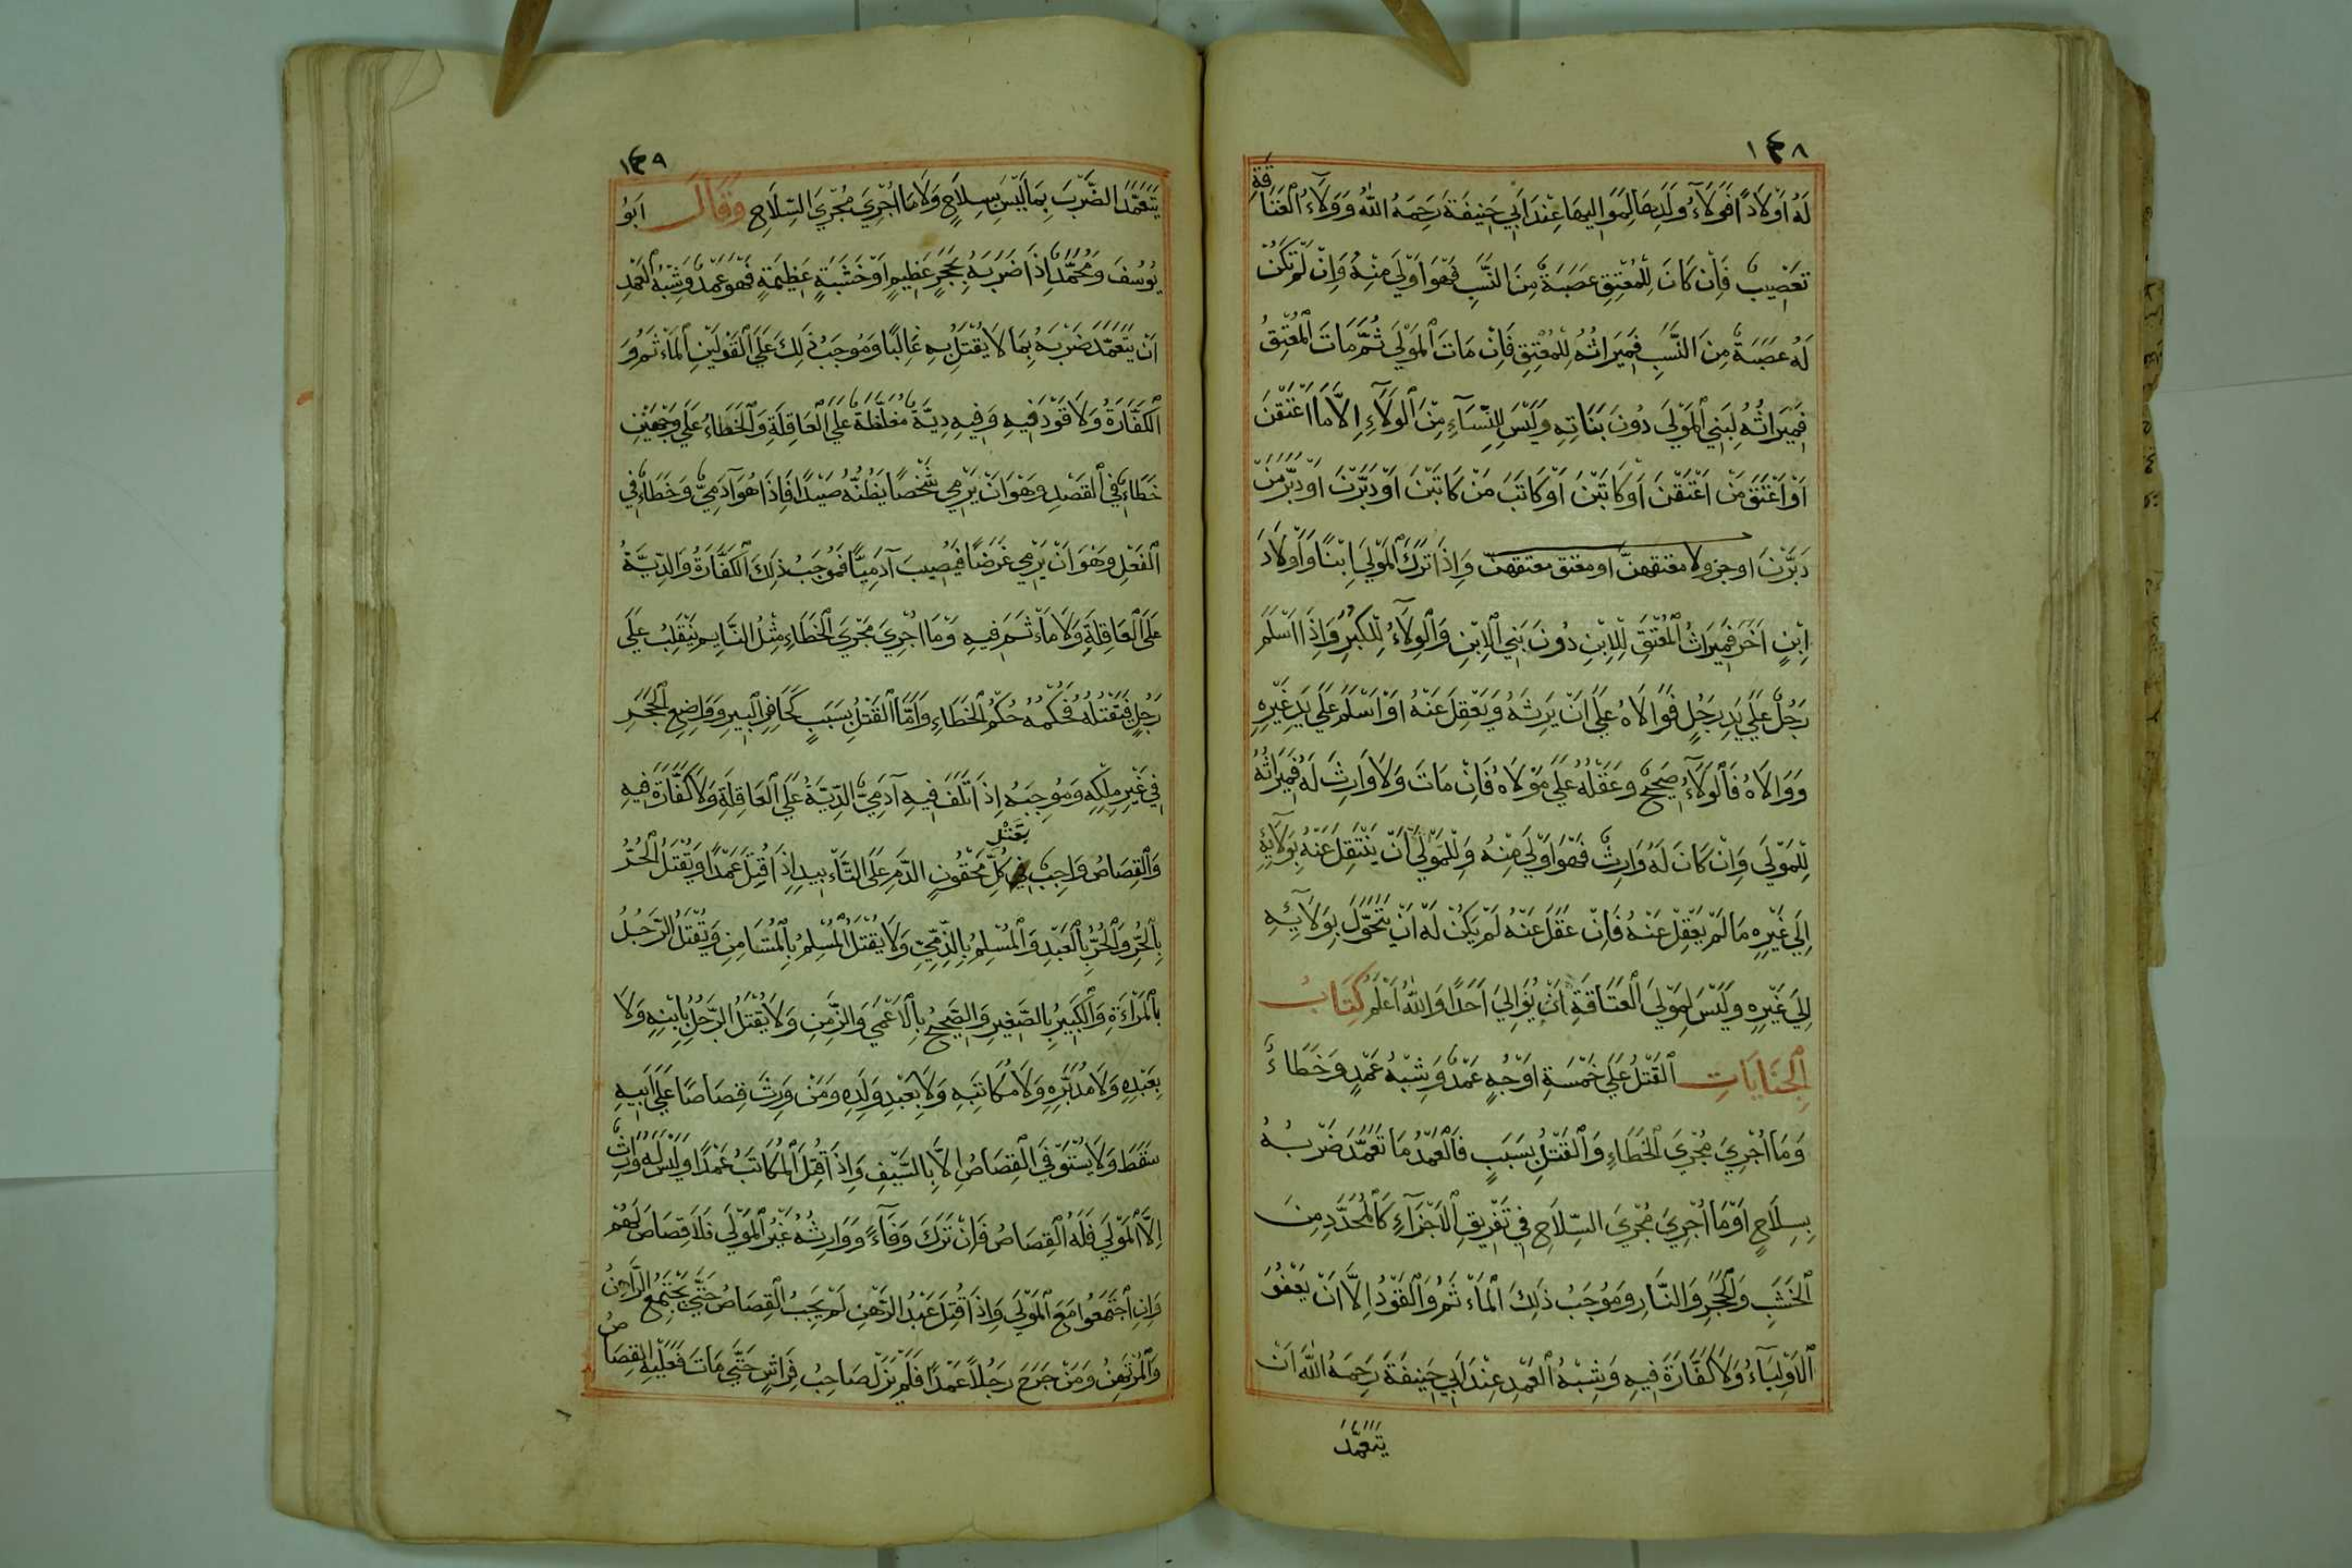 ١٤٨
لَهُ اَوْلَادًا فَوَلَآءُ وَلَدِهَا لِمَوَالِيهَا عِنْدَ اَبِي حَنِيفَةَ رَحِمَهُ اللهُ وَوَلَآءُ الْعَتَاقَةِ
تَعْصِيبٌ فَاِنْ كَانَ لِلْمُعْتِقِ عَصَبَةٌ مِنَ النَّسَبِ فَهُوَ اَوْلَي مِنْهُ وَاِنْ لَمْ تَكُنْ
لَهُ عَصَبَةٌ مِنَ النَّسَبِ فَمِيرَاثُهُ لِلْمُعْتِقِ فَاِنْ مَاتَ الْمَوْلَي ثُمَّ مَاتَ الْمُعْتِقُ
فَمِيرَاثُهُ لِبَنِي الْمَوْلَى دُونَ بَنَاتِهِ وَلَيْسَ لِلنِّسَآءِ مِنَ الْوَلَآءِ اِلَّا مَا اَعْتَقْنَ
اَوْ اَعْتَقَ مَنْ اَعْتَقْنَ اَوْ كَاتَبْنَ اَوْ كَاتَبَ مَنْ كَاتَبْنَ اَوْ دَبَّرْنَ اَوْ دَبَّرَ مَنْ
دَبَّرْنَ او جر ولا معتقهنّ او معتق معتقهن وَاِذَا تَرَكَ الْمَوْلَي اِبْنًا وَاَوْلَادَ
اِبْنٍ اَخَرَ فَمِيرَاثُ الْمُعْتَقِ لِلِابْنِ دُونَ بَنِي الْاِبْنِ وَالْوَلَآءُ لِلْكَبِيرِ وَاِذَا اَسْلَمَ
رَجُلٌ عَلَي يَدِ رَجُلٍ فَوَالَاهُ عَلَي اَنْ يَرِثَهُ وَيَعْقِلَ عَنْهُ اَوْ اَسْلَمَ عَلَي يَدِ غَيْرِهِ
وَوَالَاهُ فَالْوَلَآءُ صَحِيحٌ وَعَقْلُهُ عَلَي مَوْلَاهُ فَاِنْ مَاتَ وَلَا وَارِثَ لَهُ فَمِيرَاثُهُ
لِلْمَوْلَى وَاِنْ كَانَ لَهُ وَارِثٌ فَهُوَ اَوْلَي مِنْهُ وَلِلْمَوْلَي اَنْ يَنْتَقِلَ عَنْهُ بِوَلَآيِهِ
اِلَي غَيْرِهِ مَا لَمْ يَعْقِلْ عَنْهُ فَاِنْ عَقَلَ عَنْهُ لَمْ يَكُنْ لَهُ اَنْ يَتَحَوَّلَ بِوَلَآئِهِ
اِلَي غَيْرِهِ وَلَيْسَ لِمَوْلَي الْعَتَاقَةِ اَنْ يُوَالِيَ اَحَدًا وَاللهُ اَعْلَمُ كِتَابُ
الْجِنَايَاتِ الْقَتْلُ عَلَي خَمْسَةِ اَوْجُهٍ عَمْدٌ وَشِبْهُ عَمْدٍ وَخَطَاءٌ
وَمَا اُجْرِيَ مُجْرِيَ الْخَطَاءِ وَالْقَتْلُ بِسَبَبٍ فَالْعَمْدُ مَا تَعَمَّدَ ضَرْبُهُ
بِسِلَاحٍ اَوْ مَا اُجْرِيَ مُجْرِيَ السِّلَاحِ فِي تَفْرِيقِ الْاَجْزَآءِ كَالْمُحَدَّدِ مِنَ
الْخَشَبِ وَالْحَجَرِ وَالنَّارِ وَمُوجَبُ ذَلِكَ الْمَأثَمُ وَالْقَوْدُ اِلَّا اَنْ يَعْفُوَ
الْاَوْلِيَآءُ وَلَا كَفَّارَةَ فِيهِ وَشِبْهُ الْعَمْدِ عِنْدَ اَبِي حَنِيفَةَ رَحِمَهُ اللهُ اَنْ
يَتَعَمَّدَ
١٤٩
يَتَعَمَّدَ الضَّرْبَ بِمَا لَيْسَ بِسِلَاحٍ وَلَا مَا اُجْرِيَ مُجْرِيَ السِّلَاحِ وَقَالَ اَبُو
يُوسُفَ وَمُحَمَّدٌ اِذَا ضَرَبَهُ بِحَجَرٍ عَظِيمٍ اَوْ خَشَبَةٍ عَظِيمَةٍ فَهُوَ عَمْدٌ وَشِبْهُ الْعَمْدِ
اَنْ يَتَعَمَّدَ ضَرْبَهُ بِمَا لَا يُقْتَلُ بِهِ غَالِبًا وَمُوجَبُ ذَلِكَ عَلَي الْقَوْلَيْنِ الْمَأثَمُ وَ
الْكَفَّارَةُ وَلَا قَوَدَ فِيهِ وَفِيهِ دِيَةٌ مُغَلَّظَةٌ عَلَي الْعَاقِلَةِ وَالْخَطَاءُ عَلَي وَجْهَيْنِ
خَطَاءٌ فِي الْقَصْدِ وَهُوَ اَنْ يَرْمِي شَخْصًا يَظُنُّهُ صَيْدًا فَاِذَا هُوَ آدَمِيٌّ وَخَطَاءٌ فِي
الْفِعْلِ وَهُوَ اَنْ يَرْمِي غَرَضًا فَيُصِيبَ آدَمِيًّا فَمُوجَبُ ذَلِكَ الْكَفَّارَةُ وَالدِّيَّةُ
عَلَي الْعَاقِلَةِ وَلَا مَأثَمَ فِيهِ وَمَا اُجْرِيَ مُجْرِيَ الْخَطَاءِ مِثْلُ النَّايِمِ يَنْقَلِبُ عَلَي
رَجُلٍ فَيَقْتُلُهُ فَحُكْمُهُ حُكْمُ الْخَطَاءِ وَاَمَّا الْقَتْلُ بِسَبَبٍ كَحَافِرِ الْبِيرِ وَوَاضِعِ الْحَجَرِ
فِي غَيْرِ مِلْكِهِ وَمُوجَبُهُ اِذَا تَلَفَ فِيهِ آدَمِيٌّ الدِّيَةُ عَلَي الْعَاقِلَةِ وَلَا كَفَّارَةَ فِيهِ
وَالْقِصَاصُ وَاجِبٌ بِقَتْلِ كُلِّ مَحْقُونِ الدَّمِ عَلَي التَّأبِيدِ اِذَا قُتِلَ عَمْدًا وَيُقْتَلُ الْحُرُّ
بِالْحُرِّ وَالْحُرُّ بِالْعَبْدِ وَالْمُسْلِمُ بِالذِّمِّيِّ وَلَا يُقْتَلُ الْمُسْلِمُ بِالْمُسْتَامِنِ وَيُقْتَلُ الرَّجُلُ
بِالْمَرْأَةِ وَالْكَبِيرُ بِالصَّغِيرِ وَالصَّحِيحُ بِالْاَعْمَي وَالزَّمِنِ وَلَا يُقْتَلُ الرَّجُلُ بِابْنِهِ وَلَا
بِعَبْدِهِ وَلَا مُدَبَّرِهِ وَلَا مُكَاتَبِهِ وَلَا بِعَبْدِ وَلَدِهِ وَمَنْ وَرِثَ قِصَاصًا عَلَي اَبِيهِ
سَقَطَ وَلَا يُسْتَوْفَي الْقِصَاصُ اِلَّا بِالسَّيْفِ وَاِذَا قُتِلَ الْمُكَاتَبُ عَمْدًا وَلَيْسَ لَهُ وَارِثٌ
اِلَّا الْمَوْلَي فَلَهُ الْقِصَاصُ فَاِنْ تَرَكَ وَفَآءً وَوَارِثُهُ غَيْرُ الْمَوْلَي فَلَا قِصَاصَ لَهُمْ
وَاِنِ اجْتَمَعُوا مَعَ الْمَوْلَي وَاِذَا قُتِلَ عَبْدُ الرَّهْنِ لَمْ يَجِبِ الْقِصَاصُ حَتَّي يَجْتَمِعَ الرَّاهِنُ
وَالْمُرْتَهِنُ وَمَنْ جَرَحَ رَجُلًا عَمْدًا فَلَمْ يَزَلْ صَاحِبُ فِرَاشٍ حَتَّي مَاتَ فَعَلَيْهِ الْقِصَاصُ